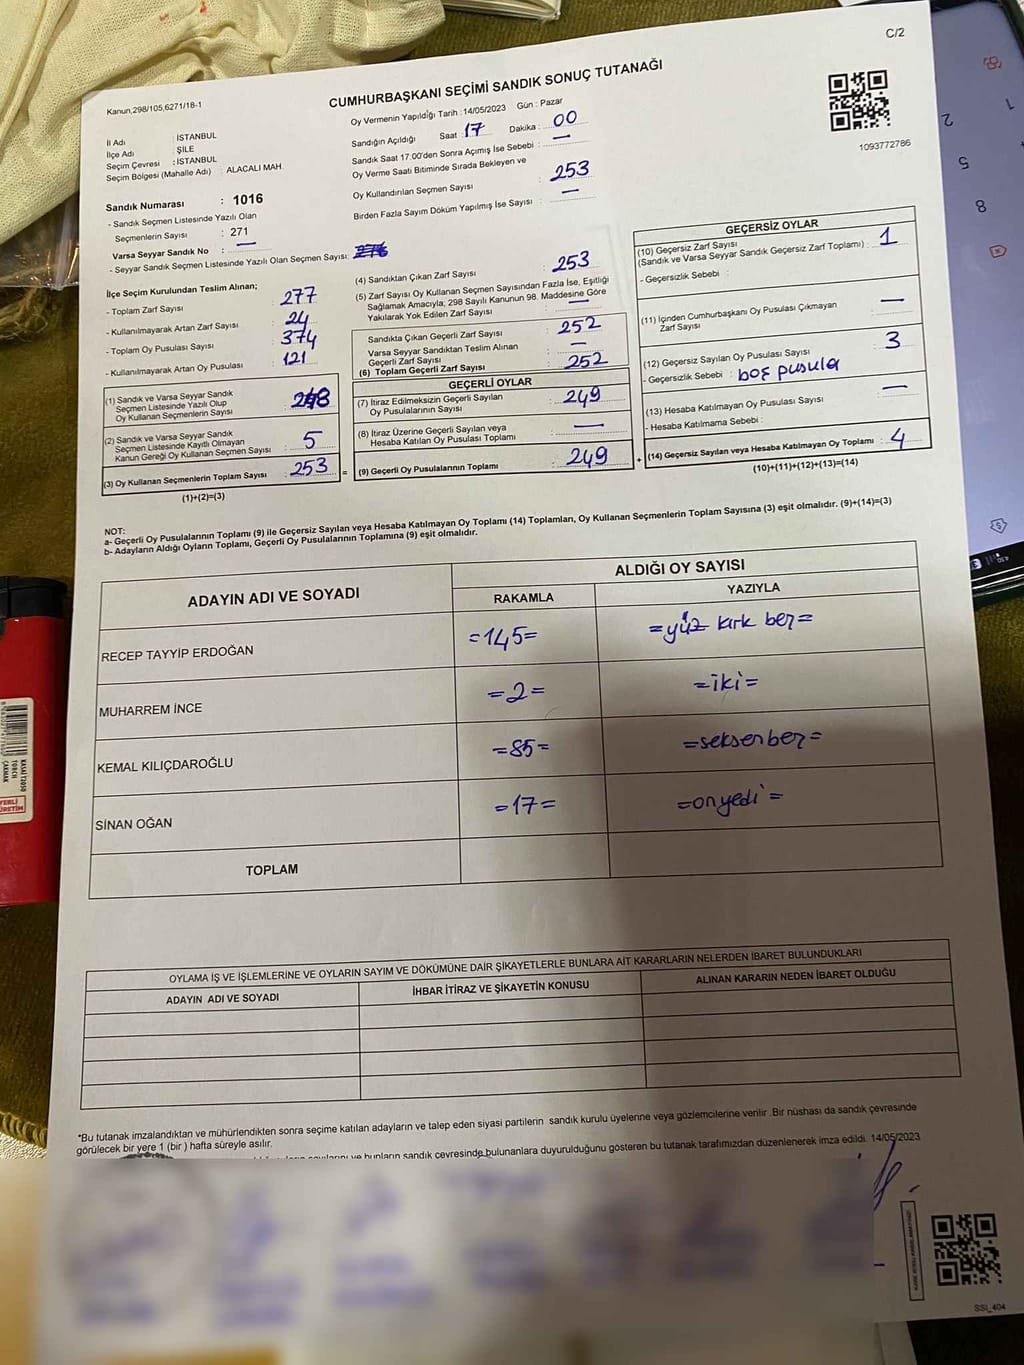 C/2
Kanun,298/105,6271/18-1
CUMHURBAŞKANI SEÇİMİ SANDIK SONUÇ TUTANAĞI
1093772786
İl Adı : İSTANBUL
İlçe Adı : ŞİLE
Seçim Çevresi : İSTANBUL
Seçim Bölgesi (Mahalle Adı) : ALACALI MAH.
Sandık Numarası : 1016
- Sandık Seçmen Listesinde Yazılı Olan
Seçmenlerin Sayısı : 271
Varsa Seyyar Sandık No : —
- Seyyar Sandık Seçmen Listesinde Yazılı Olan Seçmen Sayısı:
Oy Vermenin Yapıldığı Tarih :14/05/2023 Gün : Pazar
Sandığın Açıldığı Saat : 17 Dakika : 00
Sandık Saat 17.00'den Sonra Açımış İse Sebebi : —
Oy Verme Saati Bitiminde Sırada Bekleyen ve
Oy Kullandırılan Seçmen Sayısı : 253
Birden Fazla Sayım Döküm Yapılmış İse Sayısı : —
İlçe Seçim Kurulundan Teslim Alınan;
- Toplam Zarf Sayısı : 277
- Kullanılmayarak Artan Zarf Sayısı : 24
- Toplam Oy Pusulası Sayısı : 374
- Kullanılmayarak Artan Oy Pusulası : 121
(1) Sandık ve Varsa Seyyar Sandık
Seçmen Listesinde Yazılı Olup
Oy Kullanan Seçmenlerin Sayısı : 248
(2) Sandık ve Varsa Seyyar Sandık
Seçmen Listesinde Kayıtlı Olmayan
Kanun Gereği Oy Kullanan Seçmen Sayısı : 5
(3) Oy Kullanan Seçmenlerin Toplam Sayısı : 253 =
(1)+(2)=(3)
(4) Sandıktan Çıkan Zarf Sayısı : 253
(5) Zarf Sayısı Oy Kullanan Seçmen Sayısından Fazla İse, Eşitliği
Sağlamak Amacıyla; 298 Sayılı Kanunun 98. Maddesine Göre
Yakılarak Yok Edilen Zarf Sayısı : —
Sandıkta Çıkan Geçerli Zarf Sayısı : 252
Varsa Seyyar Sandıktan Teslim Alınan
Geçerli Zarf Sayısı : —
(6) Toplam Geçerli Zarf Sayısı : 252
GEÇERLİ OYLAR
(7) İtiraz Edilmeksizin Geçerli Sayılan
Oy Pusulalarının Sayısı : 249
(8) İtiraz Üzerine Geçerli Sayılan veya
Hesaba Katılan Oy Pusulası Toplamı : —
(9) Geçerli Oy Pusulalarının Toplamı : 249 +
GEÇERSİZ OYLAR
(10) Geçersiz Zarf Sayısı
(Sandık ve Varsa Seyyar Sandık Geçersiz Zarf Toplamı) : 1
- Geçersizlik Sebebi :
(11) İçinden Cumhurbaşkanı Oy Pusulası Çıkmayan
Zarf Sayısı : —
(12) Geçersiz Sayılan Oy Pusulası Sayısı : 3
- Geçersizlik Sebebi : boş pusula
(13) Hesaba Katılmayan Oy Pusulası Sayısı : —
- Hesaba Katılmama Sebebi :
(14) Geçersiz Sayılan veya Hesaba Katılmayan Oy Toplamı : 4
(10)+(11)+(12)+(13)=(14)
NOT:
a- Geçerli Oy Pusulalarının Toplamı (9) ile Geçersiz Sayılan veya Hesaba Katılmayan Oy Toplamı (14) Toplamları, Oy Kullanan Seçmenlerin Toplam Sayısına (3) eşit olmalıdır. (9)+(14)=(3)
b- Adayların Aldığı Oyların Toplamı, Geçerli Oy Pusulalarının Toplamına (9) eşit olmalıdır.
ADAYIN ADI VE SOYADI
ALDIĞI OY SAYISI
RAKAMLA YAZIYLA
RECEP TAYYİP ERDOĞAN =145= =yüz kırk beş=
MUHARREM İNCE =2= =iki=
KEMAL KILIÇDAROĞLU =85= =seksenbeş=
SİNAN OĞAN =17= =onyedi=
TOPLAM
OYLAMA İŞ VE İŞLEMLERİNE VE OYLARIN SAYIM VE DÖKÜMÜNE DAİR ŞİKAYETLERLE BUNLARA AİT KARARLARIN NELERDEN İBARET BULUNDUKLARI
ADAYIN ADI VE SOYADI İHBAR İTİRAZ VE ŞİKAYETİN KONUSU ALINAN KARARIN NEDEN İBARET OLDUĞU
*Bu tutanak imzalandıktan ve mühürlendikten sonra seçime katılan adayların ve talep eden siyasi partilerin sandık kurulu üyelerine veya gözlemcilerine verilir .Bir nüshası da sandık çevresinde
görülecek bir yere 1 (bir ) hafta süreyle asılır.
ve bunların sandık çevresinde bulunanlara duyurulduğunu gösteren bu tutanak tarafımızdan düzenlenerek imza edildi. 14/05/2023
SSİ_404
YERLİ
ÜRETİM
TORCH
ÇAKMAK
1
2
5
8